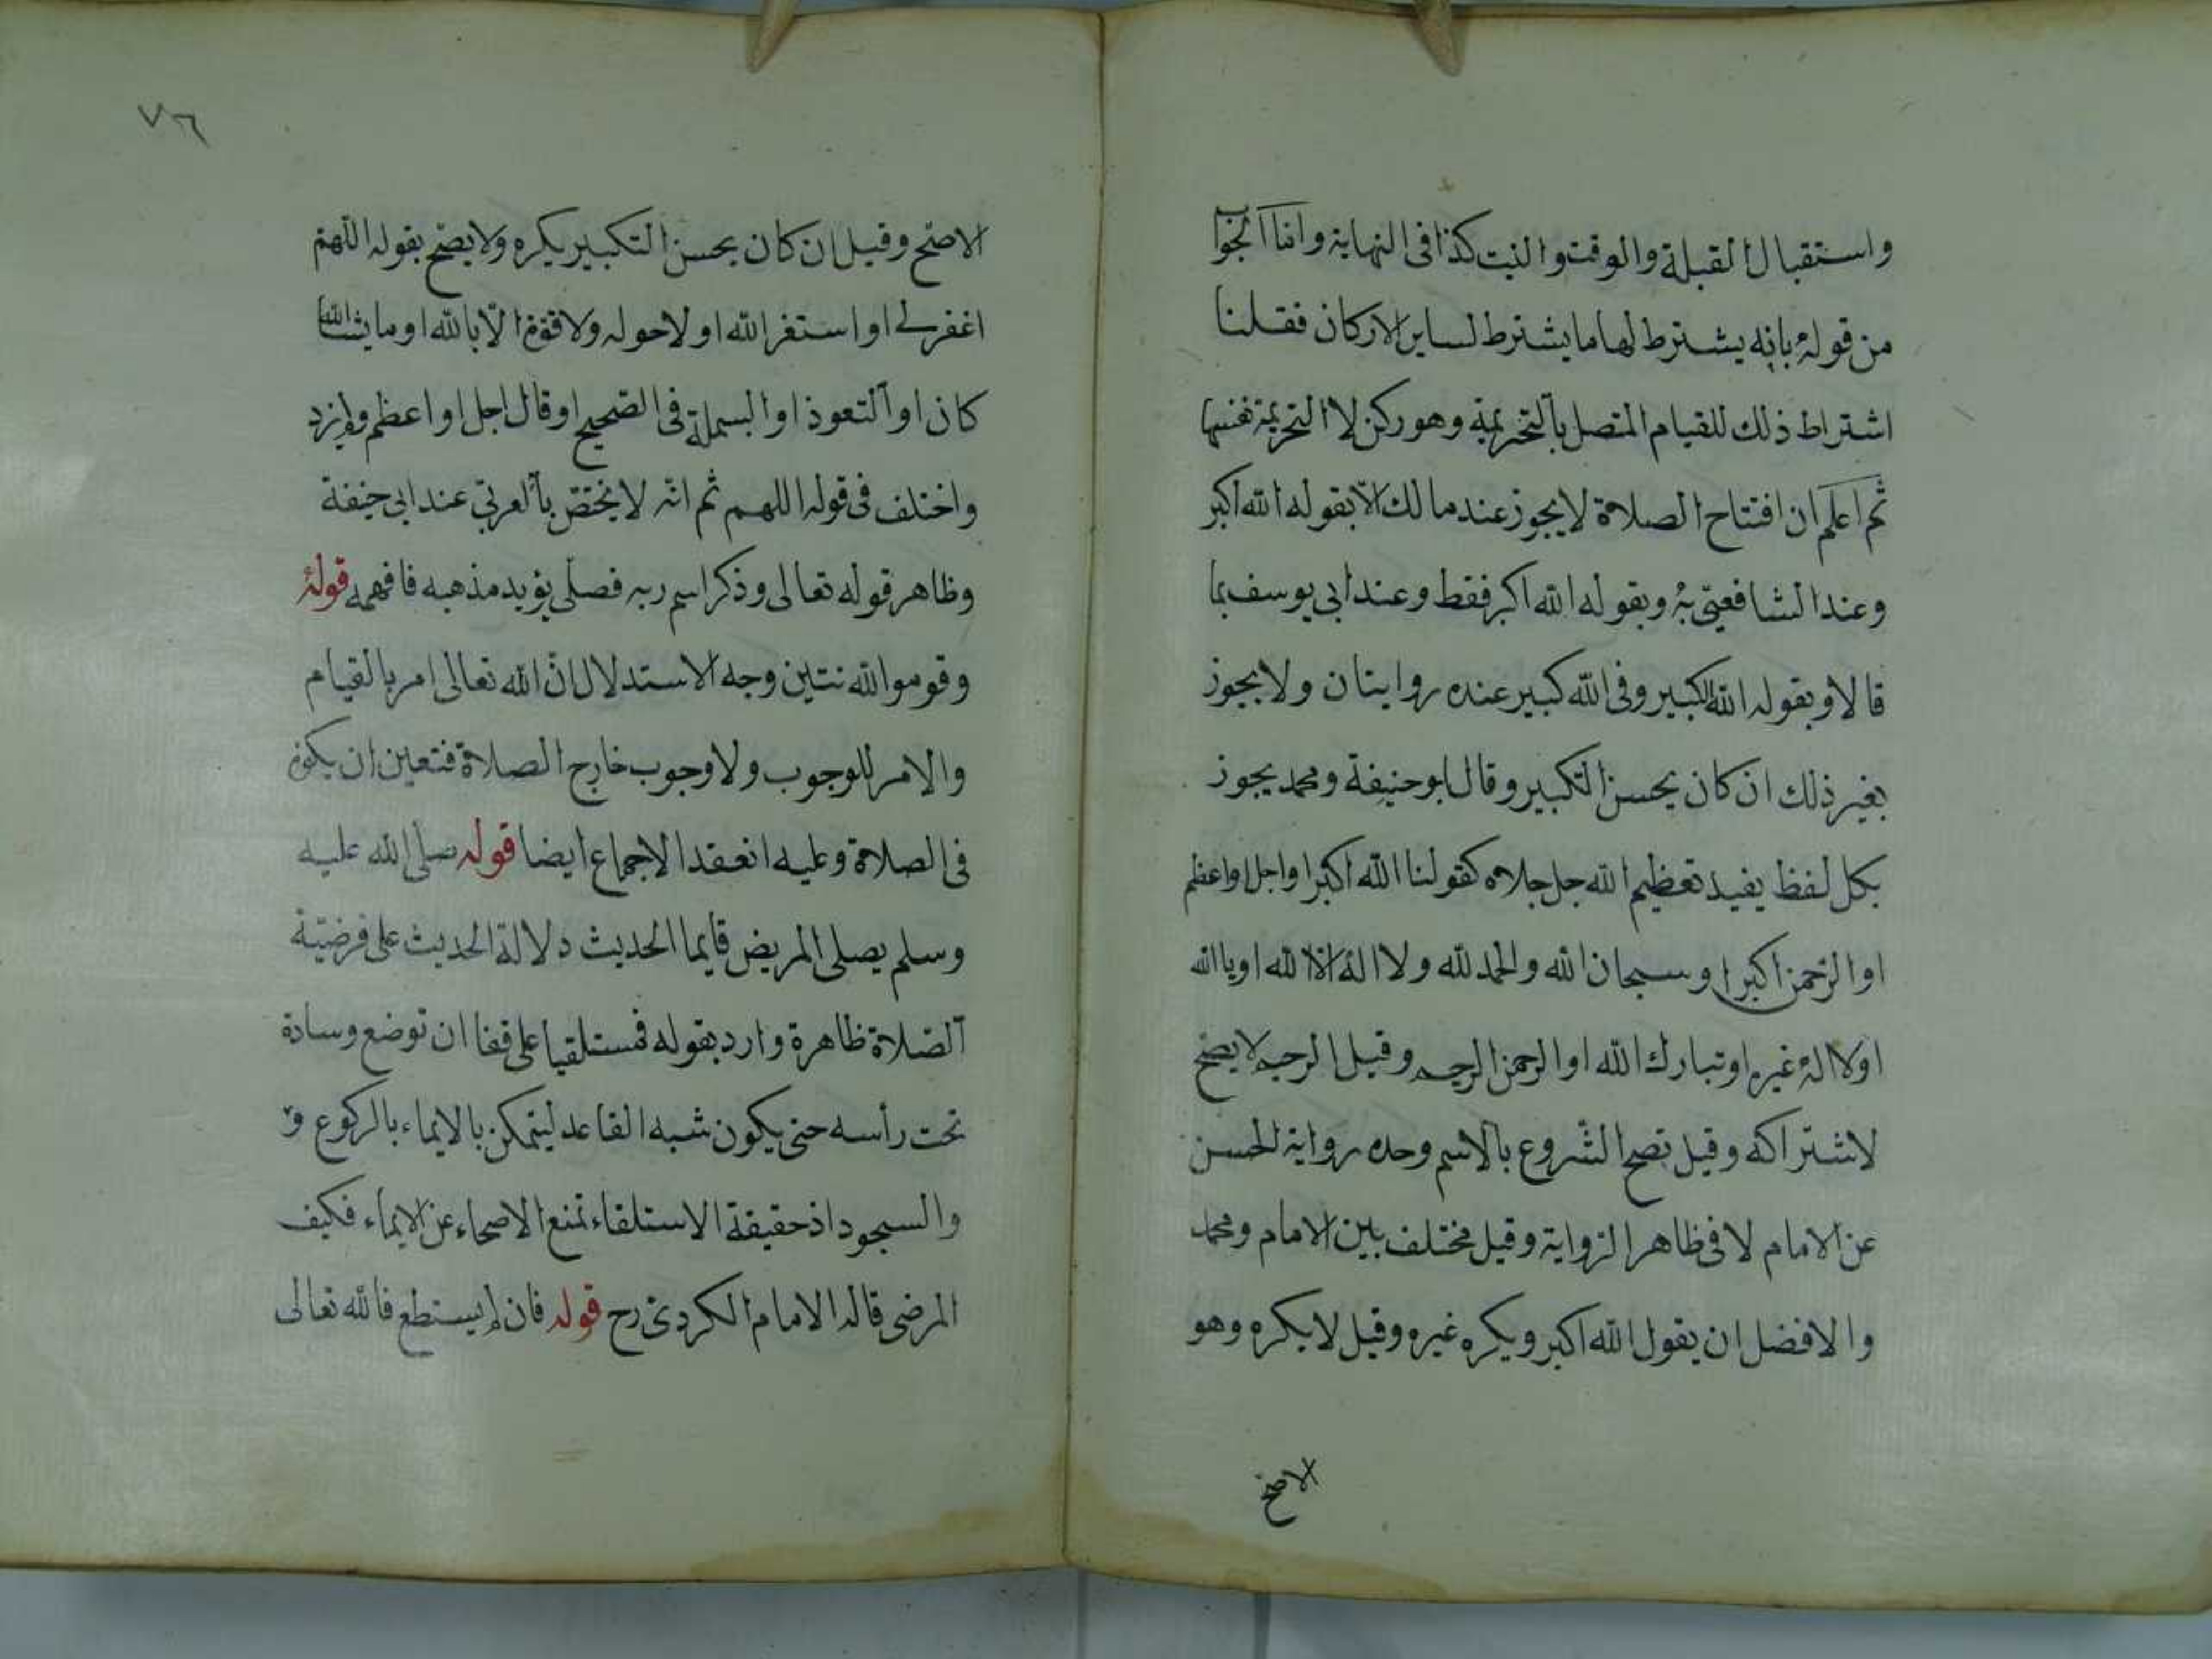 واستقبال القبلة والوقت والنية كذا في النهاية واما الجواب
من قوله بانه يشترط لها ما يشترط لساير الاركان فقلنا
اشتراط ذلك للقيام المتصل بالتحريمة وهو ركن لا التحريمة نفسها
ثم اعلم ان افتتاح الصلاة لا يجوز عند مالك الا بقوله الله اكبر
وعند الشافعي به وبقوله الله اكبر فقط وعند ابي يوسف بما
قالا وبقوله الله الكبير وفي الله كبير عنده روايتان ولا يجوز
بغير ذلك ان كان يحسن التكبير وقال ابو حنيفة ومحمد يجوز
بكل لفظ يفيد تعظيم الله جل جلاله كقولنا الله اكبر او اجل او اعظم
او الرحمن اكبر او سبحان الله والحمد لله ولا اله الا الله او يا الله
او لا اله غيره او تبارك الله او الرحمن الرحيم وقيل الرحيم لا يصح
لاشتراكه وقيل تصح الشروع بالاسم وحده رواية للحسن
عن الامام لا في ظاهر الرواية وقيل مختلف بين الامام ومحمد
والافضل ان يقول الله اكبر ويكره غيره وقيل لا يكره وهو
الاصح
٧٦
الاصح وقيل ان كان يحسن التكبير يكره ولا يصح بقوله اللهم
اغفر لي او استغفر الله او لا حول ولا قوة الا بالله او ما يشا الله
كان او التعوذ او البسملة في الصحيح او قال اجل او اعظم ولم يزد
واختلف في قوله اللهم ثم انه لا يختص بالعربي عند ابي حنيفة
وظاهر قوله تعالى وذكر اسم ربه فصلى يؤيد مذهبه فافهمه قوله
وقوموا لله نتين وجه الاستدلال ان الله تعالى امر بالقيام
والامر للوجوب ولا وجوب خارج الصلاة فتعين ان يكون
في الصلاة وعليه انعقد الاجماع ايضا قوله صلى الله عليه
وسلم يصلي المريض قايما الحديث دلالة الحديث على فرضية
الصلاة ظاهرة وارد بقوله فمستلقيا على قفا ان توضع وسادة
تحت رأسه حتى يكون شبه القاعد ليتمكن بالايماء بالركوع و
والسجود اذ حقيقة الاستلقاء تمنع الاصحاء عن الايماء فكيف
المرضى قاله الامام الكردري رح قوله فان لم يستطع فالله تعالى